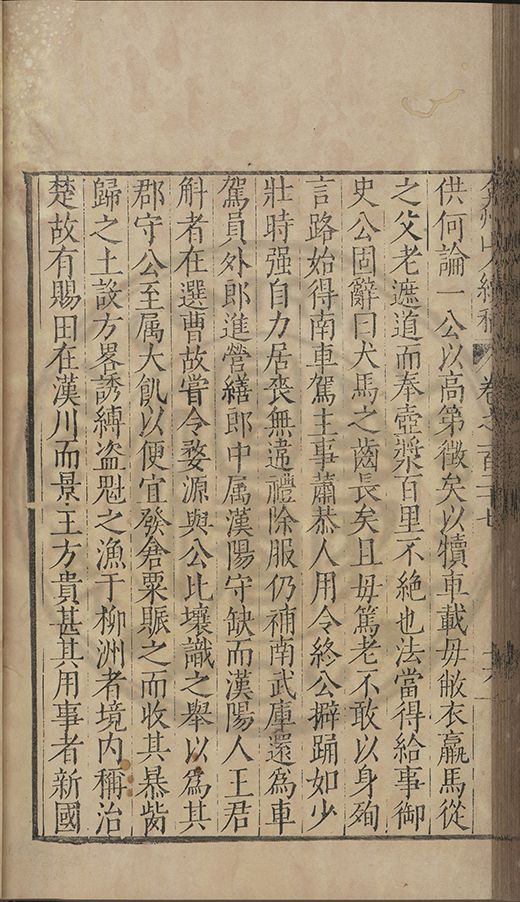 弇州山人續稿 卷之一百二十七
供何論一公以高第徵矣以犢車載毋敝衣羸馬從
之父老遮道而奉壺漿百里不絶也法當得給事御
史公固辭曰犬馬之齒長矣且毋篤老不敢以身殉
言路始得南車駕主事蕭恭人用令終公擗踊如少
壯時强自力居喪無違禮除服仍補南武庫還為車
駕員外郎進營繕郎中属漢陽守缺而漢陽人王君
斛者在選曹故甞令婺源與公比壤識之舉以為其
郡守公至属大飢以便宜發倉粟賑之而收其暴骴
歸之土設方畧誘縛盗魁之漁于柳洲者境内稱治
楚故有賜田在漢川而景王方貴甚其用事者新國